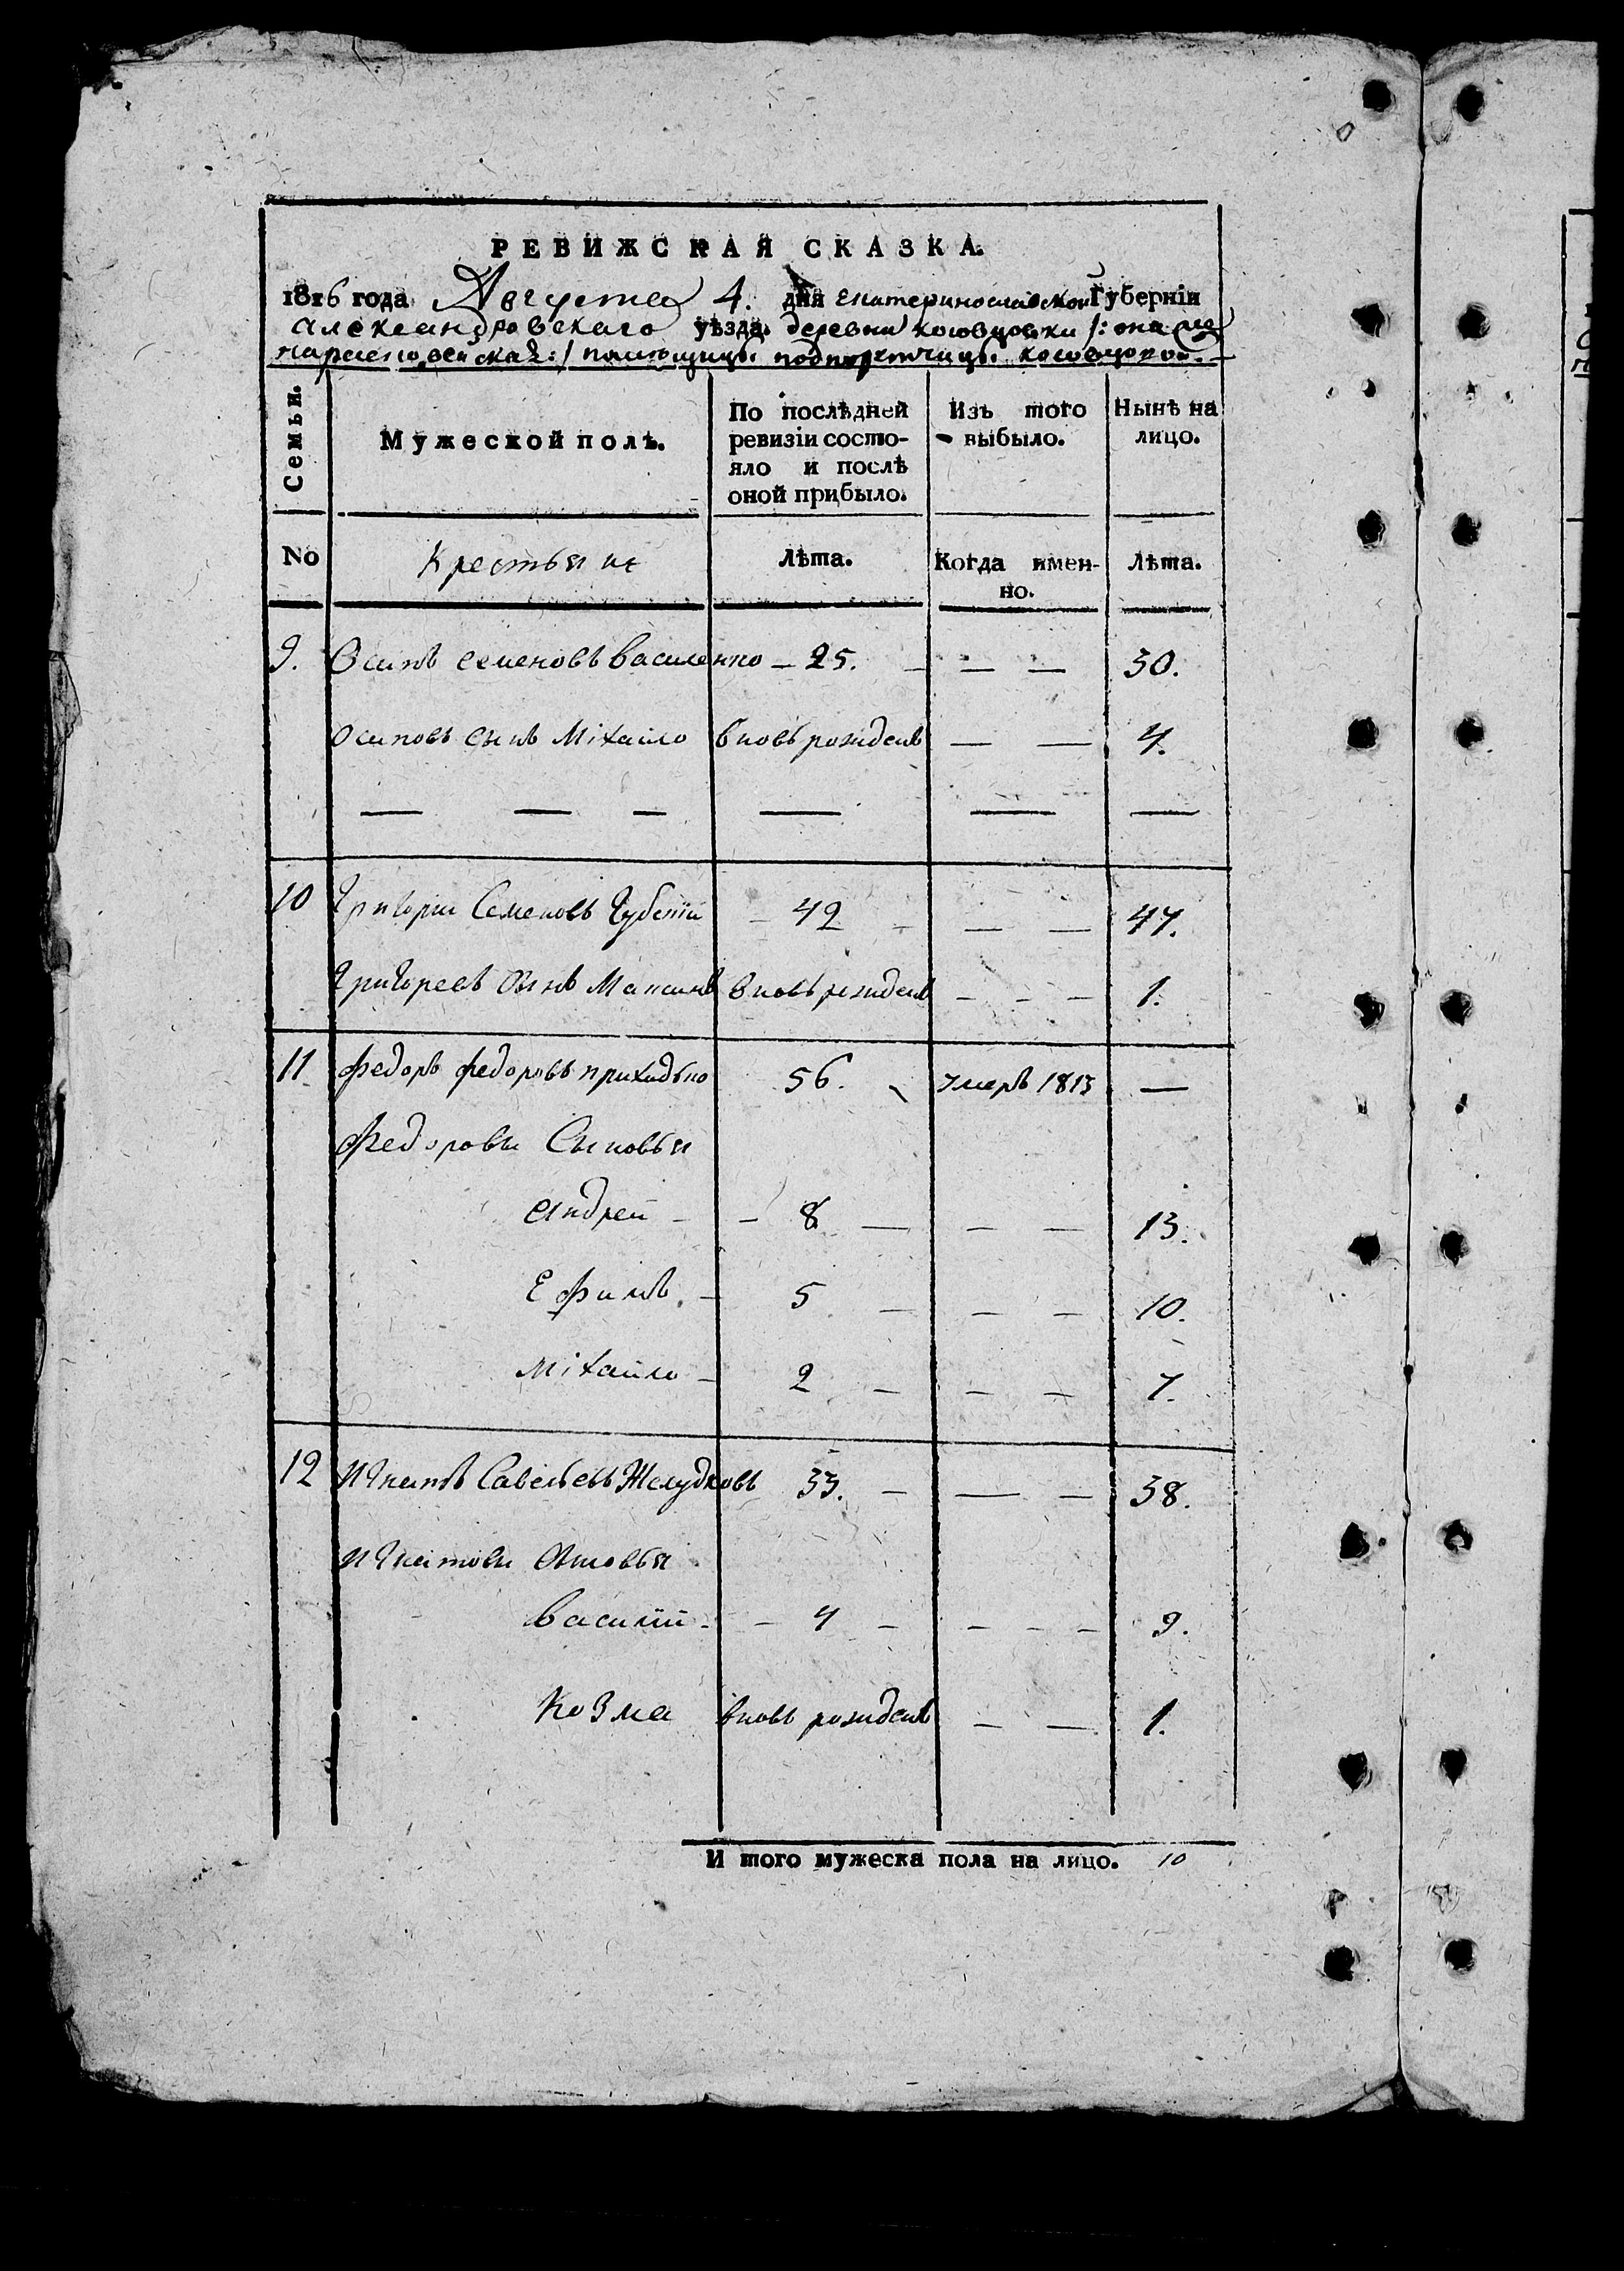 РЕВИЖСКАЯ СКАЗКА.
1816 года Августа 4. дня Екатеринославской Губерніи
Александровскаго уѣзда. деревни косовцовки /: она же
:/ помѣщицы подпорутчицы косовцовой.
Семьи. Мужеской полъ. По послѣдней ревизіи состо- Изъ того Нынѣ на
яло и послѣ выбыло. лицо.
оной прибыло.
No Крестьяне Лѣта. Когда имен- Лѣта.
но.
9. Осипъ семеновъ василенко — 25. — — — 30.
Осиповъ сынъ Міхайло вновь рожденъ — — 4.
— — — — — —
10 Григорій Семеновъ Губскій — 42 — — — 47.
Григорьевъ Сынъ Максимъ вновь рожденъ — — — 1.
11. федоръ федоровъ приходько 56. умеръ 1813 —
федоровы Сыновья
Андрей — — 8 — — — 13.
Ефимъ. — 5 — — — 10.
Міхайло — 2 — — — 7.
12 Игнатъ Савельевъ Желудковъ 33. — — — 38.
Игнатовы Сыновья
Василій — — 4 — — — — 9.
Козма вновь рожденъ — — 1.
И того мужеска пола на лицо. 10